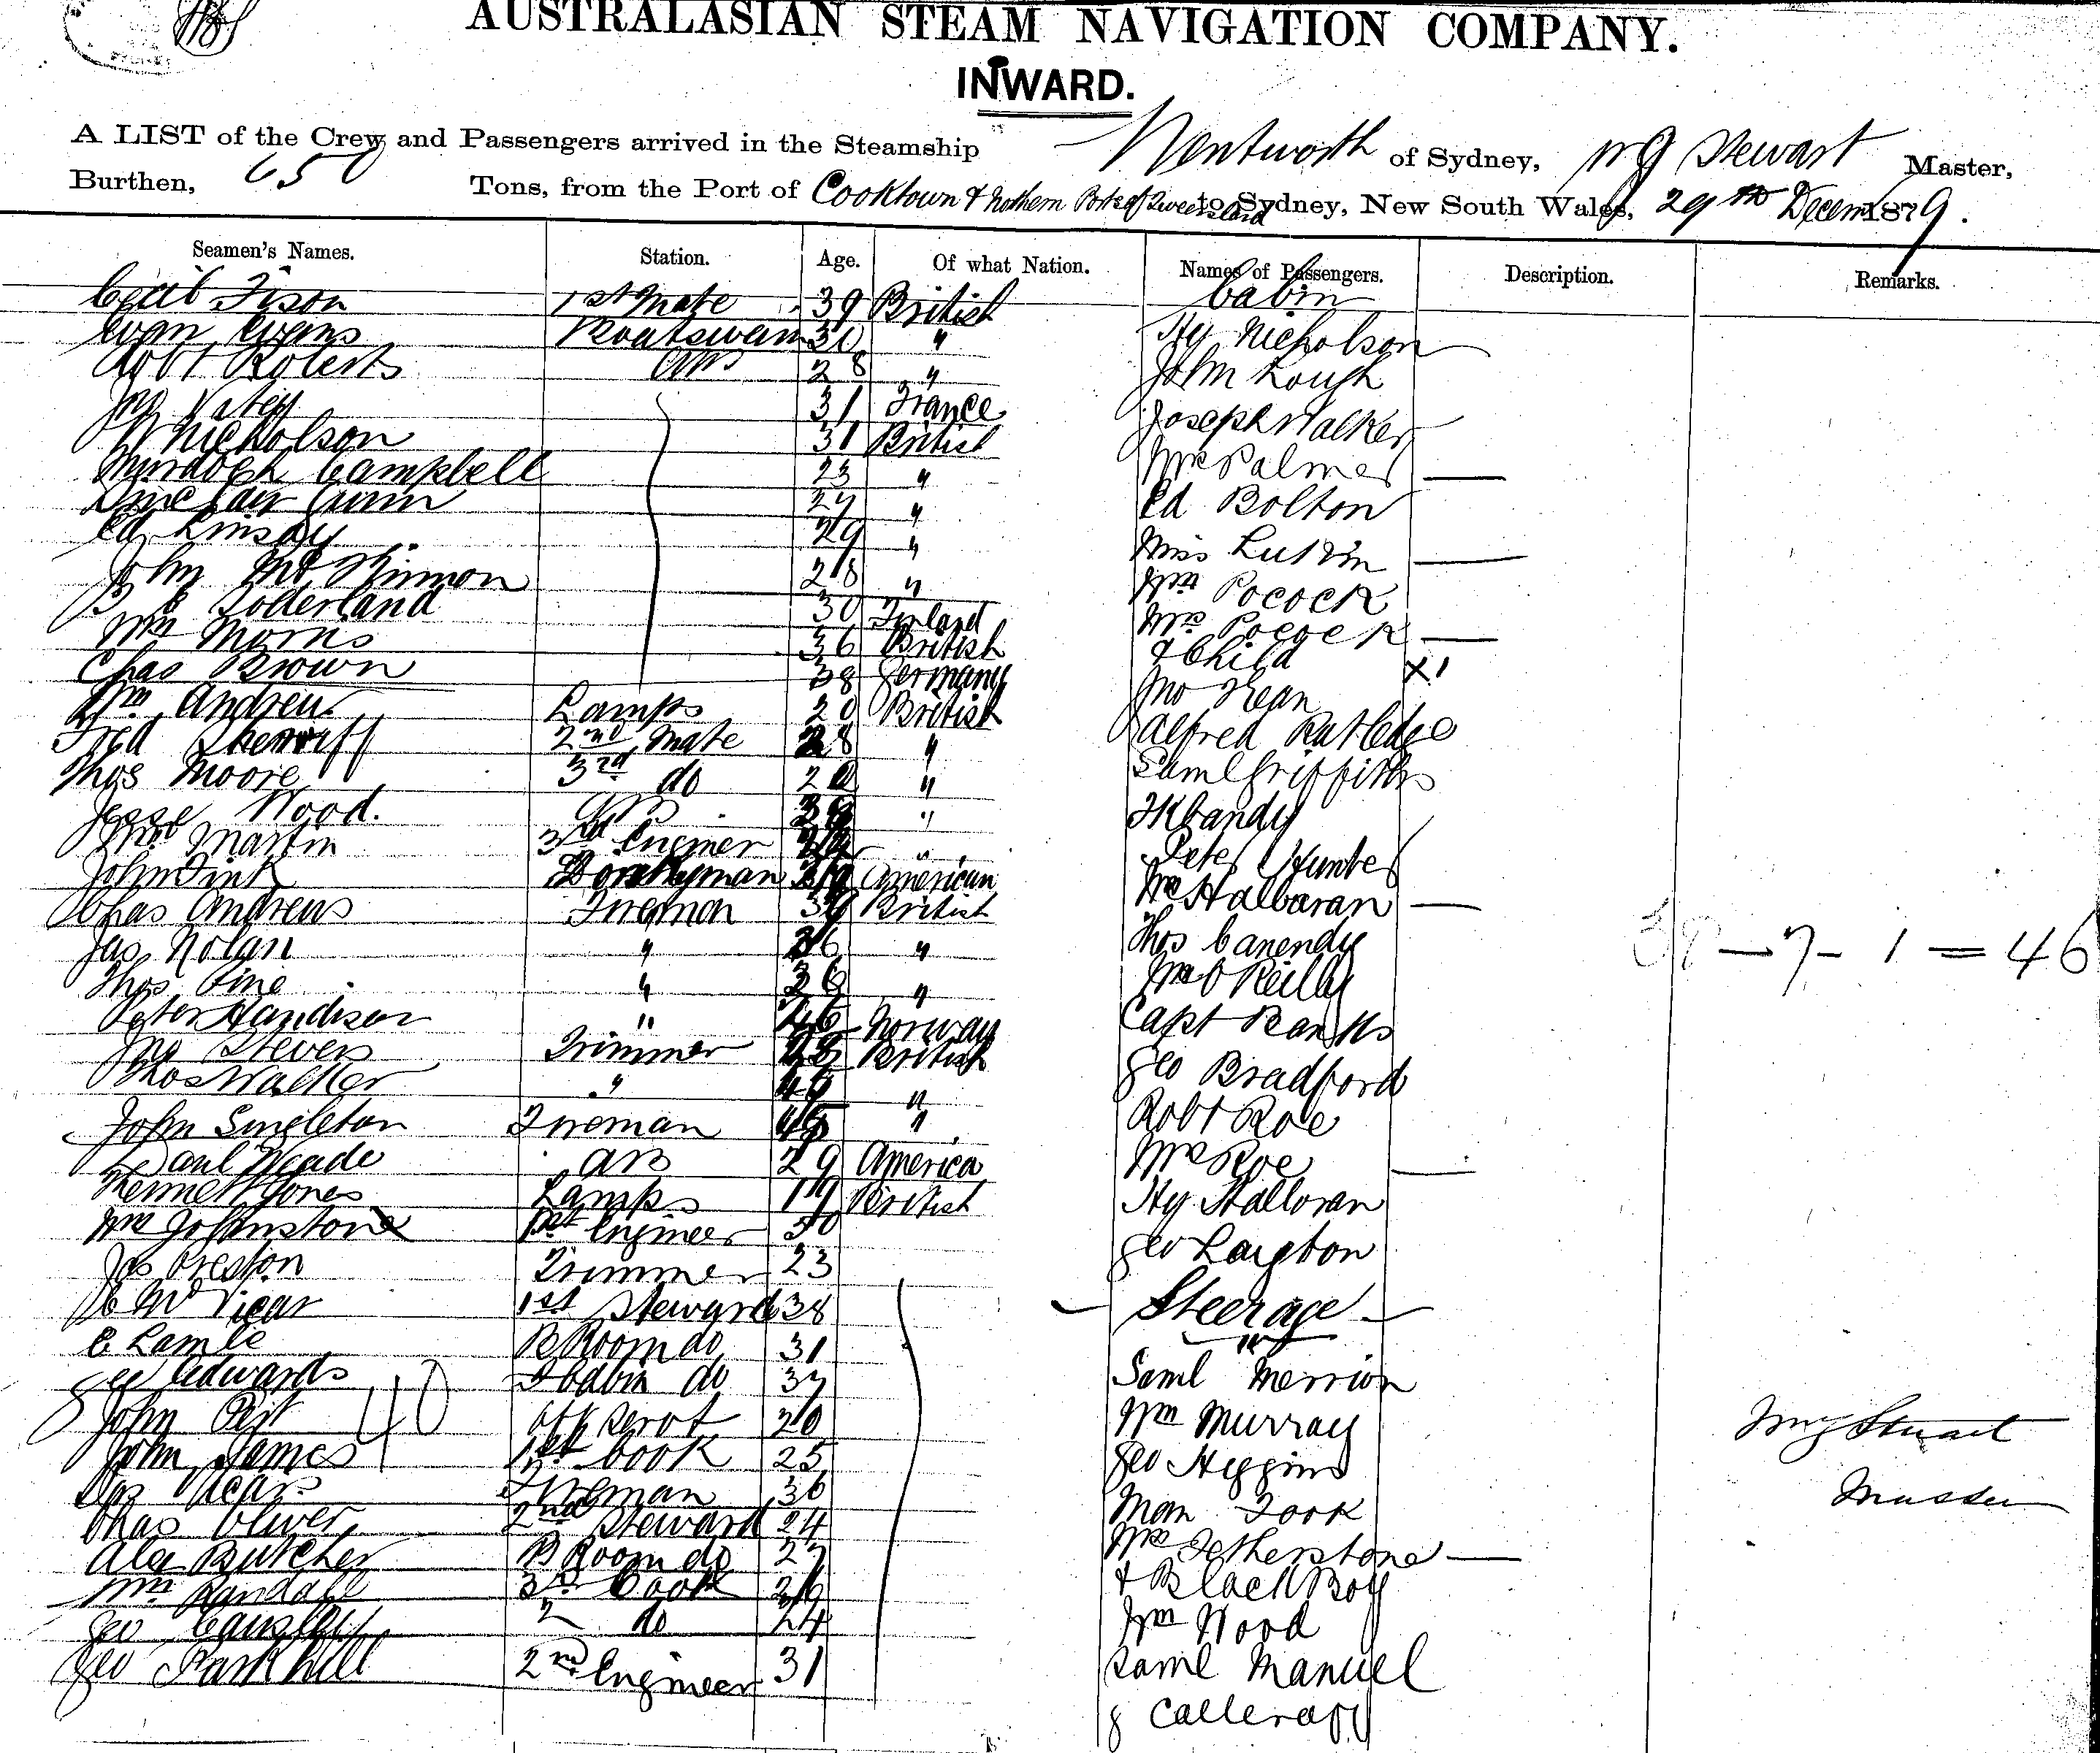 AUSTRALASIAN STEAM NAVIGATION COMPANY.
INWARD.
A LIST of the Crew and Passengers arrived in the Steamship Wentworth of Sydney, W G Stewart Master,
Burthen, 650 Tons, from the Port of Cooktown & Northern Ports of Queensland to Sydney, New South Wales, 29th Decem 1879.
Seamen's Names. Station. Age. Of what Nation. Names of Passengers. Description. Remarks.
Cecil Fison 1st Mate 39 British Cabin
Evan Evans Boatswain 30 " Hy Nicholson
Robt Roberts AB 28 " John Lough
31 France Joseph Walker
W Nicholson 31 British Mrs Palmer
Murdoch Campbell 23 " Ed Bolton
Sinclair Gunn 27 " Miss
Ed Linsay 29 " Wm Pocock
John McKinnon 28 " Mrs Pocock
Soderland 30 Finland & Child X1
Wm Morris 36 British Jno Kean
Chas Brown 38 Germany Alfred Rutledge
Wm Andrew Lamps 20 British Saml Griffiths
Fred Sherriff 2nd Mate 28 "
Thos Moore 3rd do " Peter Hunter
Jesse Wood. AB " Mrs Halbaran
Martin 3rd Engineer " Thos
John Fink Donkeyman American O'Reilly
Chas Andrews Fireman 39 British Capt Banks
Jas Nolan " 26 " Geo Bradford
Thos Pine " 36 " Robt Roe
Peter Handisen " 46 Norway Mrs Roe
Jno Steven Trimmer British Hy Halloran
Thos Walker " " Geo Langton
John Singleton Fireman " Steerage
Paul Wade AB 29 America Saml Merrion
Kennett Jones Lamps 19 British Wm Murray
Wm Johnstone 1st Engineer 50 Geo Higgins
Jas Preston Trimmer 23 Mon Fook
McVicar 1st Steward 38 Mrs Fetherstone
C Lamble B Room do 31 & Black Boy
Geo Edwards F Cabin do 37 Wm Wood
John 20 Saml Manuel
John James 1st Cook 25 J
Fireman 36
Chas Oliver 2nd Steward 24
Alex Butcher B Room do 27
Wm Randall 3rd Cook 26
Geo 2 do 24
Geo Parkhill 2nd Engineer 31
40
38 - 7 - 1 = 46
Wm G Stuart
Master